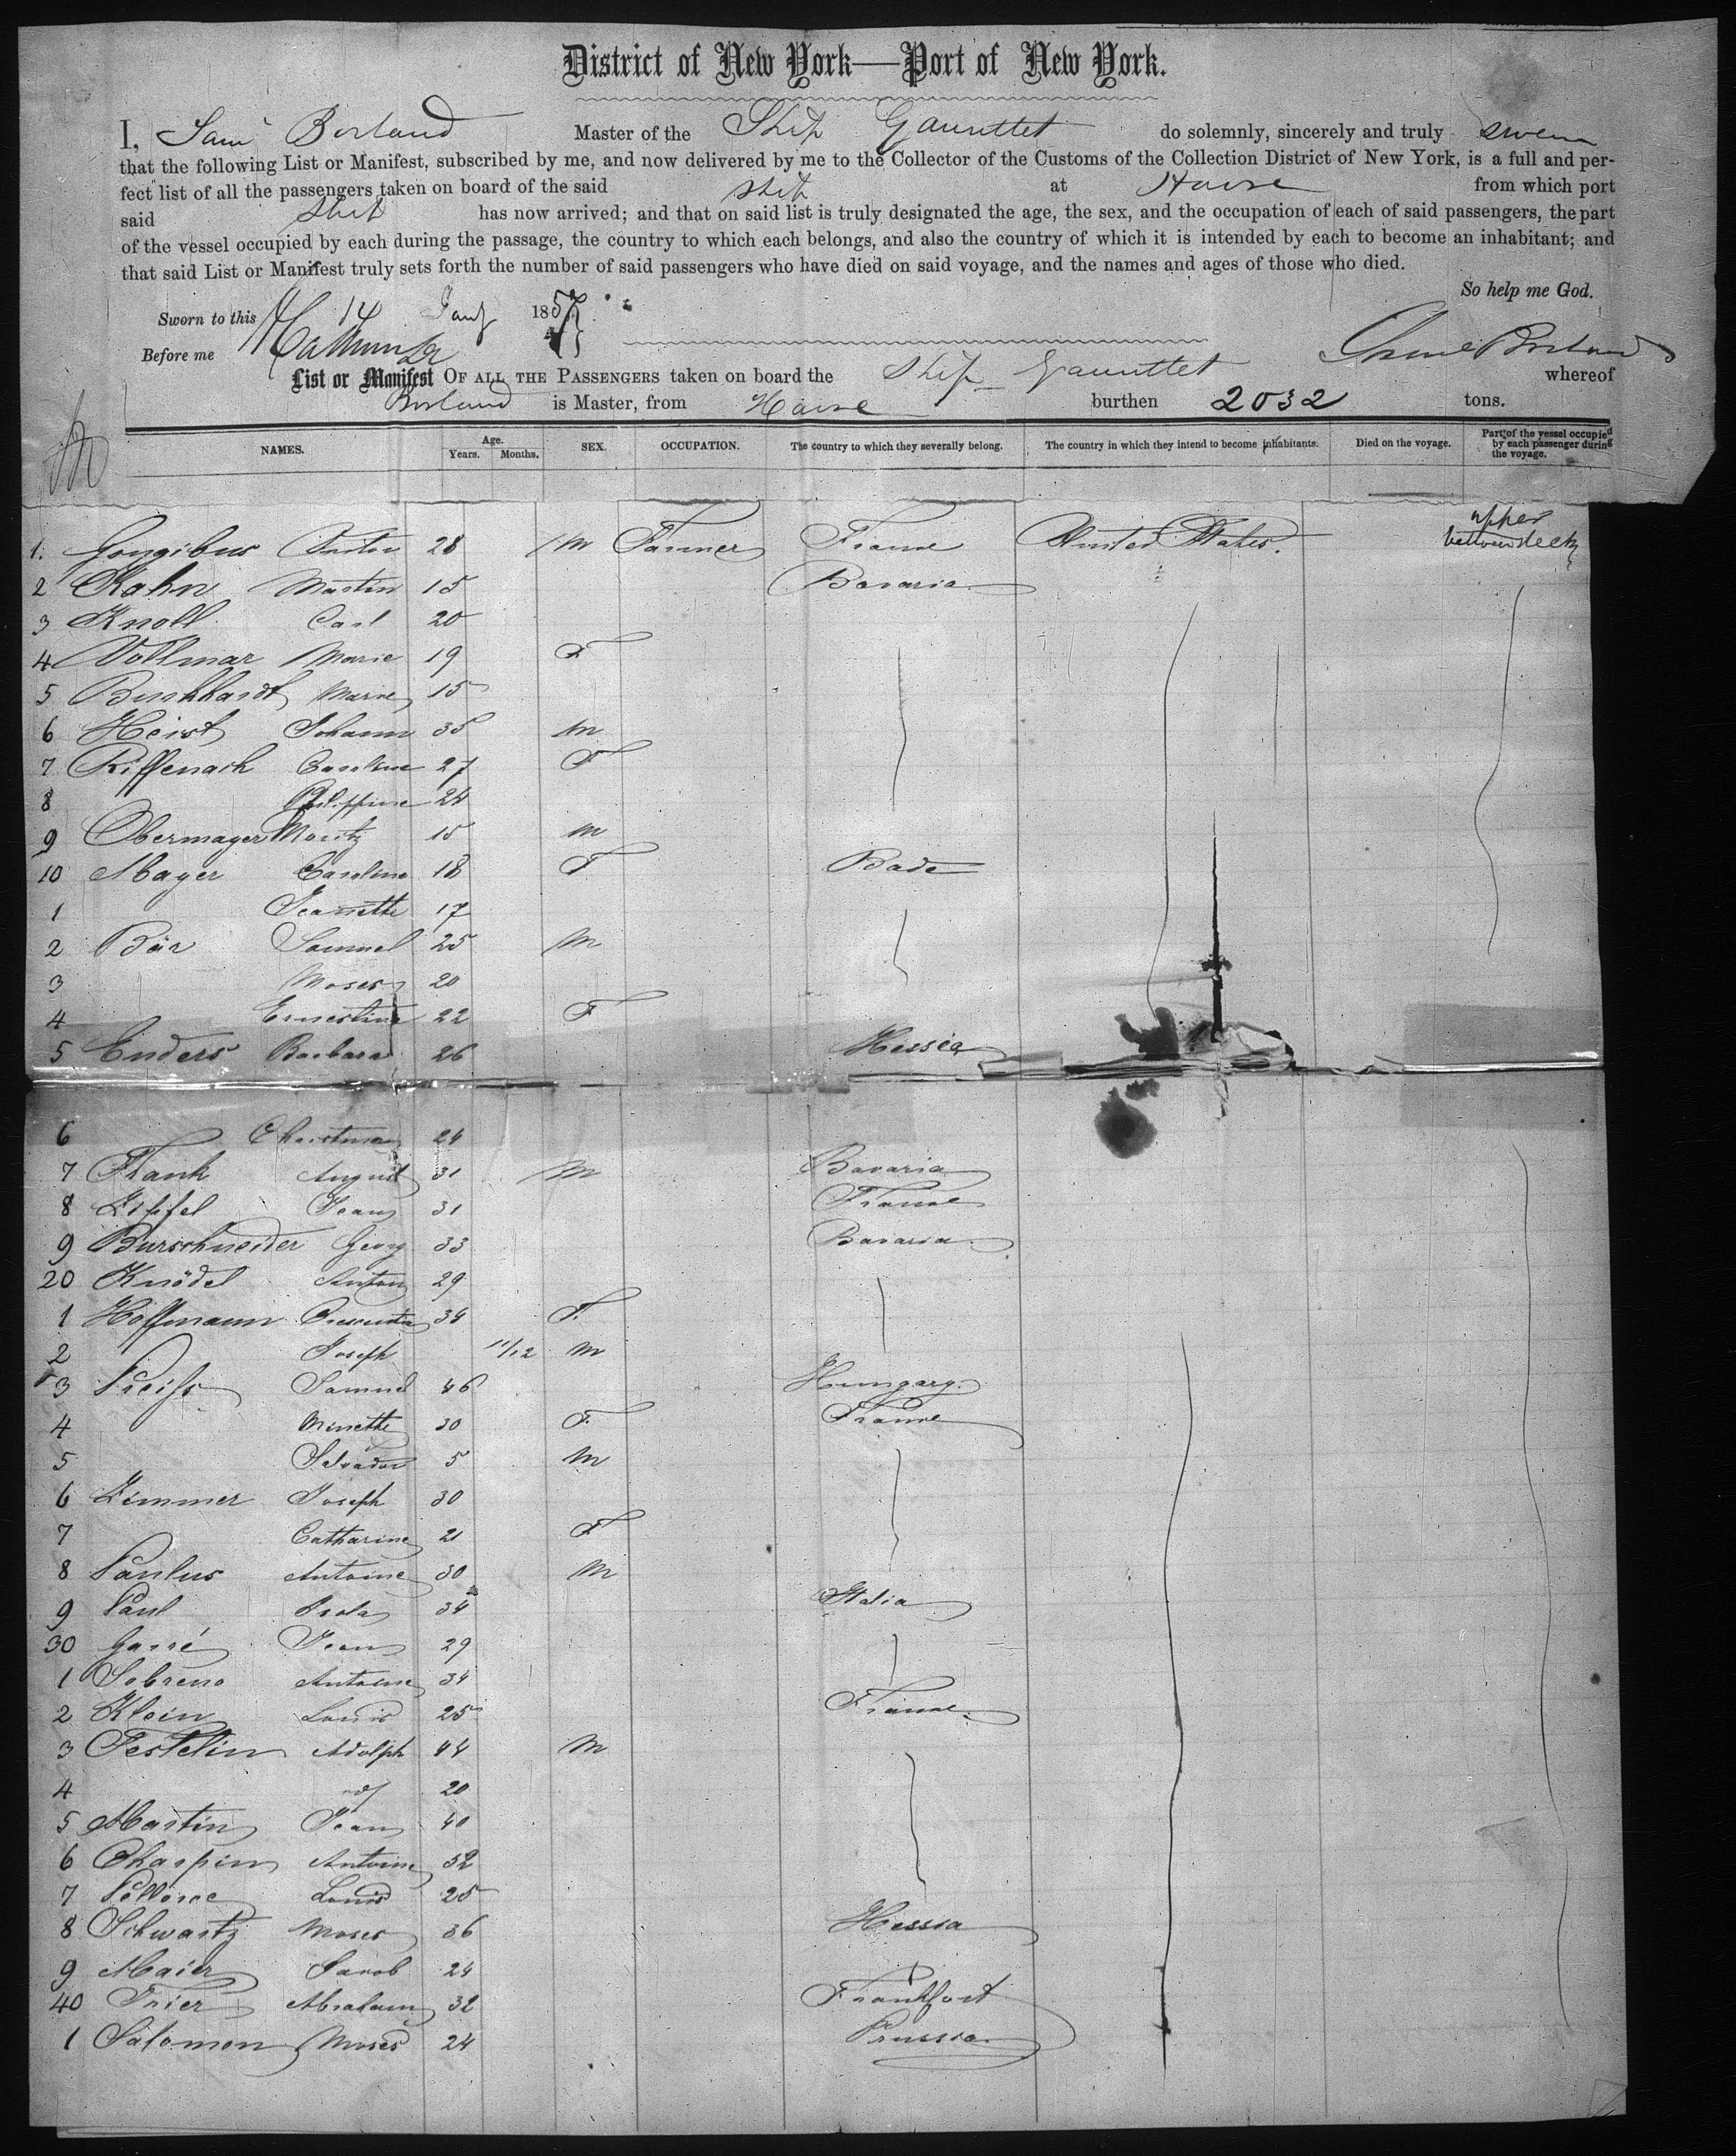 District of New York—Port of New York.
I, Sam Borland Master of the Ship Gauntlet do solemnly, sincerely and truly swear
that the following List or Manifest, subscribed by me, and now delivered by me to the Collector of the Customs of the Collection District of New York, is a full and per-
fect list of all the passengers taken on board of the said ship at Havre from which port
said ship has now arrived; and that on said list is truly designated the age, the sex, and the occupation of each of said passengers, the part
of the vessel occupied by each during the passage, the country to which each belongs, and also the country of which it is intended by each to become an inhabitant; and
that said List or Manifest truly sets forth the number of said passengers who have died on said voyage, and the names and ages of those who died.
So help me God.
Sworn to this 14 Jany 1857
Before me Borland
List or Manifest OF ALL THE PASSENGERS taken on board the Ship Gauntlet whereof
Borland is Master, from Havre burthen 2032 tons.
NAMES. Age. Years. Months. SEX. OCCUPATION. The country to which they severally belong. The country in which they intend to become inhabitants. Died on the voyage. Part of the vessel occupied by each passenger during the voyage.
1. Gougibus Anton 28 M Farmer France United States. upper betweendeck
2 Kahn Martin 15 Bavaria
3 Knoll Carl 20
4 Vollmar Marie 19 F
5 Burkhardt Marie 15
6 Heist Johann 35 M
7 Riffenach Caroline 27 F
8 Philippine 24
9 Obermayer Moritz 15 M
10 Mayer Caroline 18 F Bade
1 Jeannette 17
2 Bär Samuel 25 M
3 Moses 20
4 Ernestine 22 F
5 Enders Barbara 26 Hessia
6 24
7 Frank August 31 M Bavaria
8 Jean 31 France
9 Burschneider Georg 33 Bavaria
20 Knödel Anton 29
1 Hoffmann 34 F.
2 Joseph 11/12 M
3 Preiss Samuel 46 Hungary.
4 Minette 30 F France
5 5 M
6 Zimmer Joseph 30
7 Catharine 21 F
8 Paulus Antoine 30 M
9 Paul 34 Italia
30 Garré Jean 29
1 Sobreno Antoine 34
2 Klein Louis 25 France
3 Testelin Adolph 44 M
4 20
5 Martin Jean 40
6 Chaspin Antoine 32
7 Louis 25
8 Schwartz Moses 36 Hessia
9 Maier Jacob 24
40 Trier Abraham 32 Frankfort
1 Salomon Moses 24 Prussia